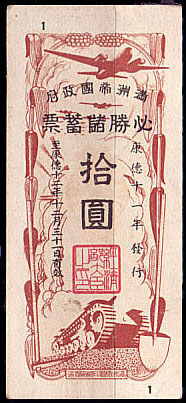 1
滿洲帝國政府
必勝儲蓄票
康德十一年發行
拾圓
至康德十二年十二月三十一日有效
1